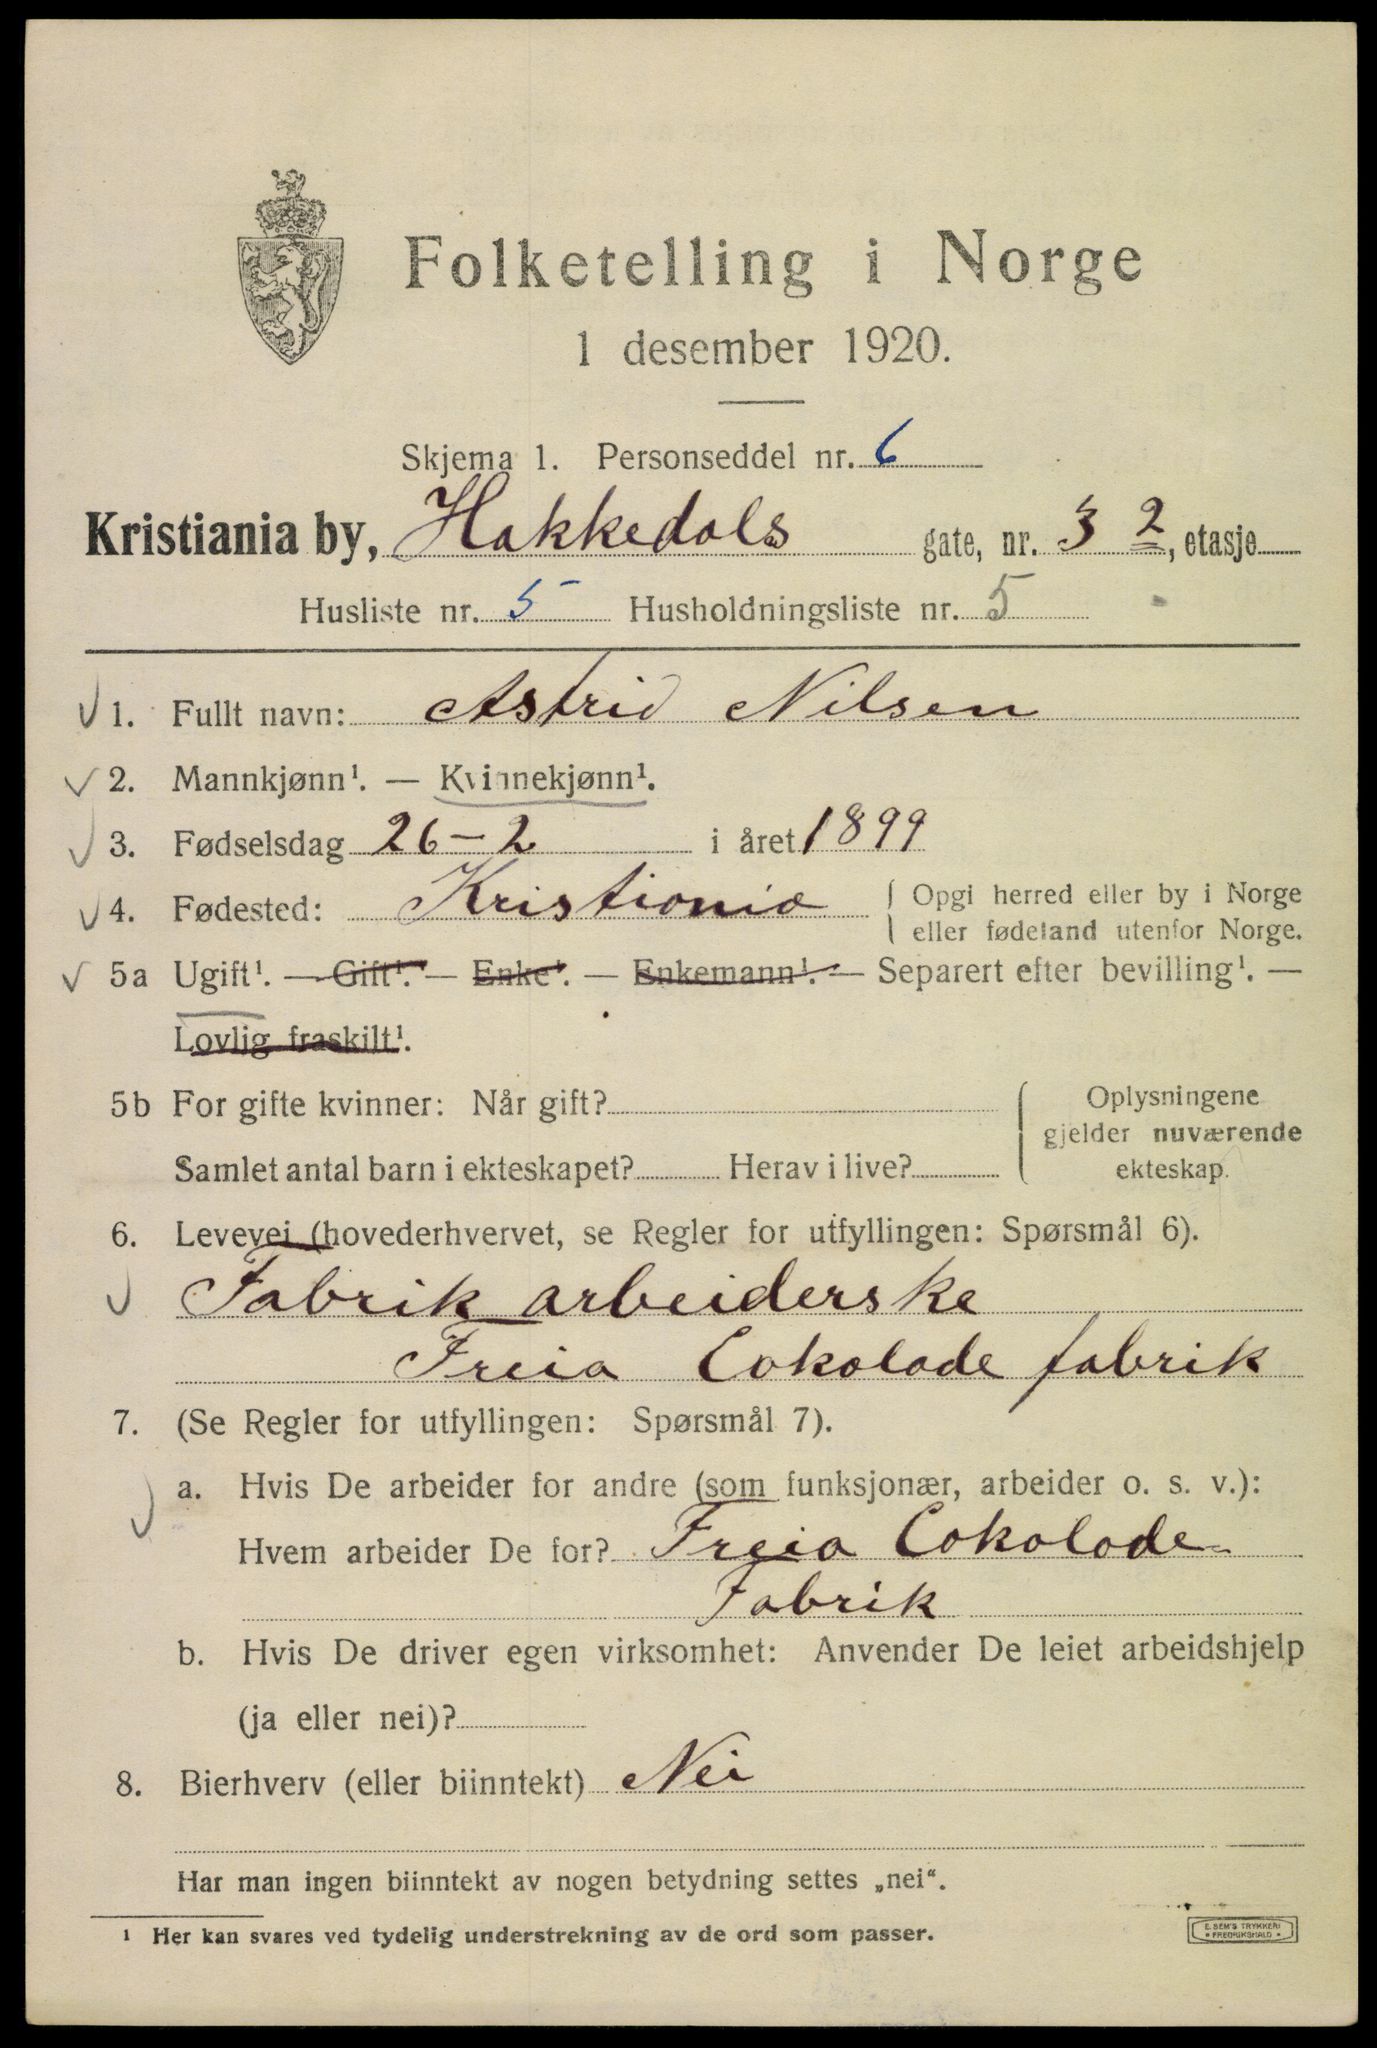 Folketelling i Norge
1 desember 1920.
Skjema 1. Personseddel nr. 6
Kristiania by, Hakkedals gate, nr. 3 2, etasje
Husliste nr. 5 Husholdningsliste nr. 5
1. Fullt navn: Astrid Nilsen
2. Mannkjønn¹. — Kvinnekjønn¹.
3. Fødselsdag 26-2 i året 1899
4. Fødested: Kristiania { Opgi herred eller by i Norge
eller fødeland utenfor Norge.
5a Ugift¹. — Gift¹. — Enke¹. — Enkemann¹. — Separert efter bevilling¹. —
Lovlig fraskilt¹.
5b For gifte kvinner: Når gift? Oplysningene
gjelder nuværende
Samlet antal barn i ekteskapet? Herav i live? ekteskap.
6. Levevei (hovederhvervet, se Regler for utfyllingen: Spørsmål 6).
Fabrik arbeiderske
Freia Cokolade fabrik
7. (Se Regler for utfyllingen: Spørsmål 7).
a. Hvis De arbeider for andre (som funksjonær, arbeider o. s. v.):
Hvem arbeider De for? Freia Cokolade-
Fabrik
b. Hvis De driver egen virksomhet: Anvender De leiet arbeidshjelp
(ja eller nei)?
8. Bierhverv (eller biinntekt) Nei
Har man ingen biinntekt av nogen betydning settes „nei“.
¹ Her kan svares ved tydelig understrekning av de ord som passer.
E. SEM'S TRYKKERI
• FREDRIKSHALD •